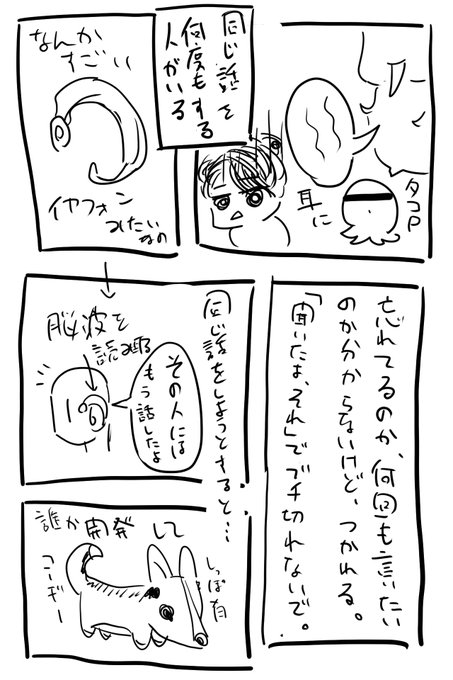 同じ話を
何度もする
人がいる
タコP
耳に
忘れてるのか、何回も言いたい
のか分からないけど、つかれる。
「聞いたよ、それ」でブチ切れないで。
なんか
すごい
イヤフォン
つけたい
なの
同じ話をしようとすると…
脳波を
読み取る
その人には
もう話したよ
誰か開発して
しっぽ有
コーギー